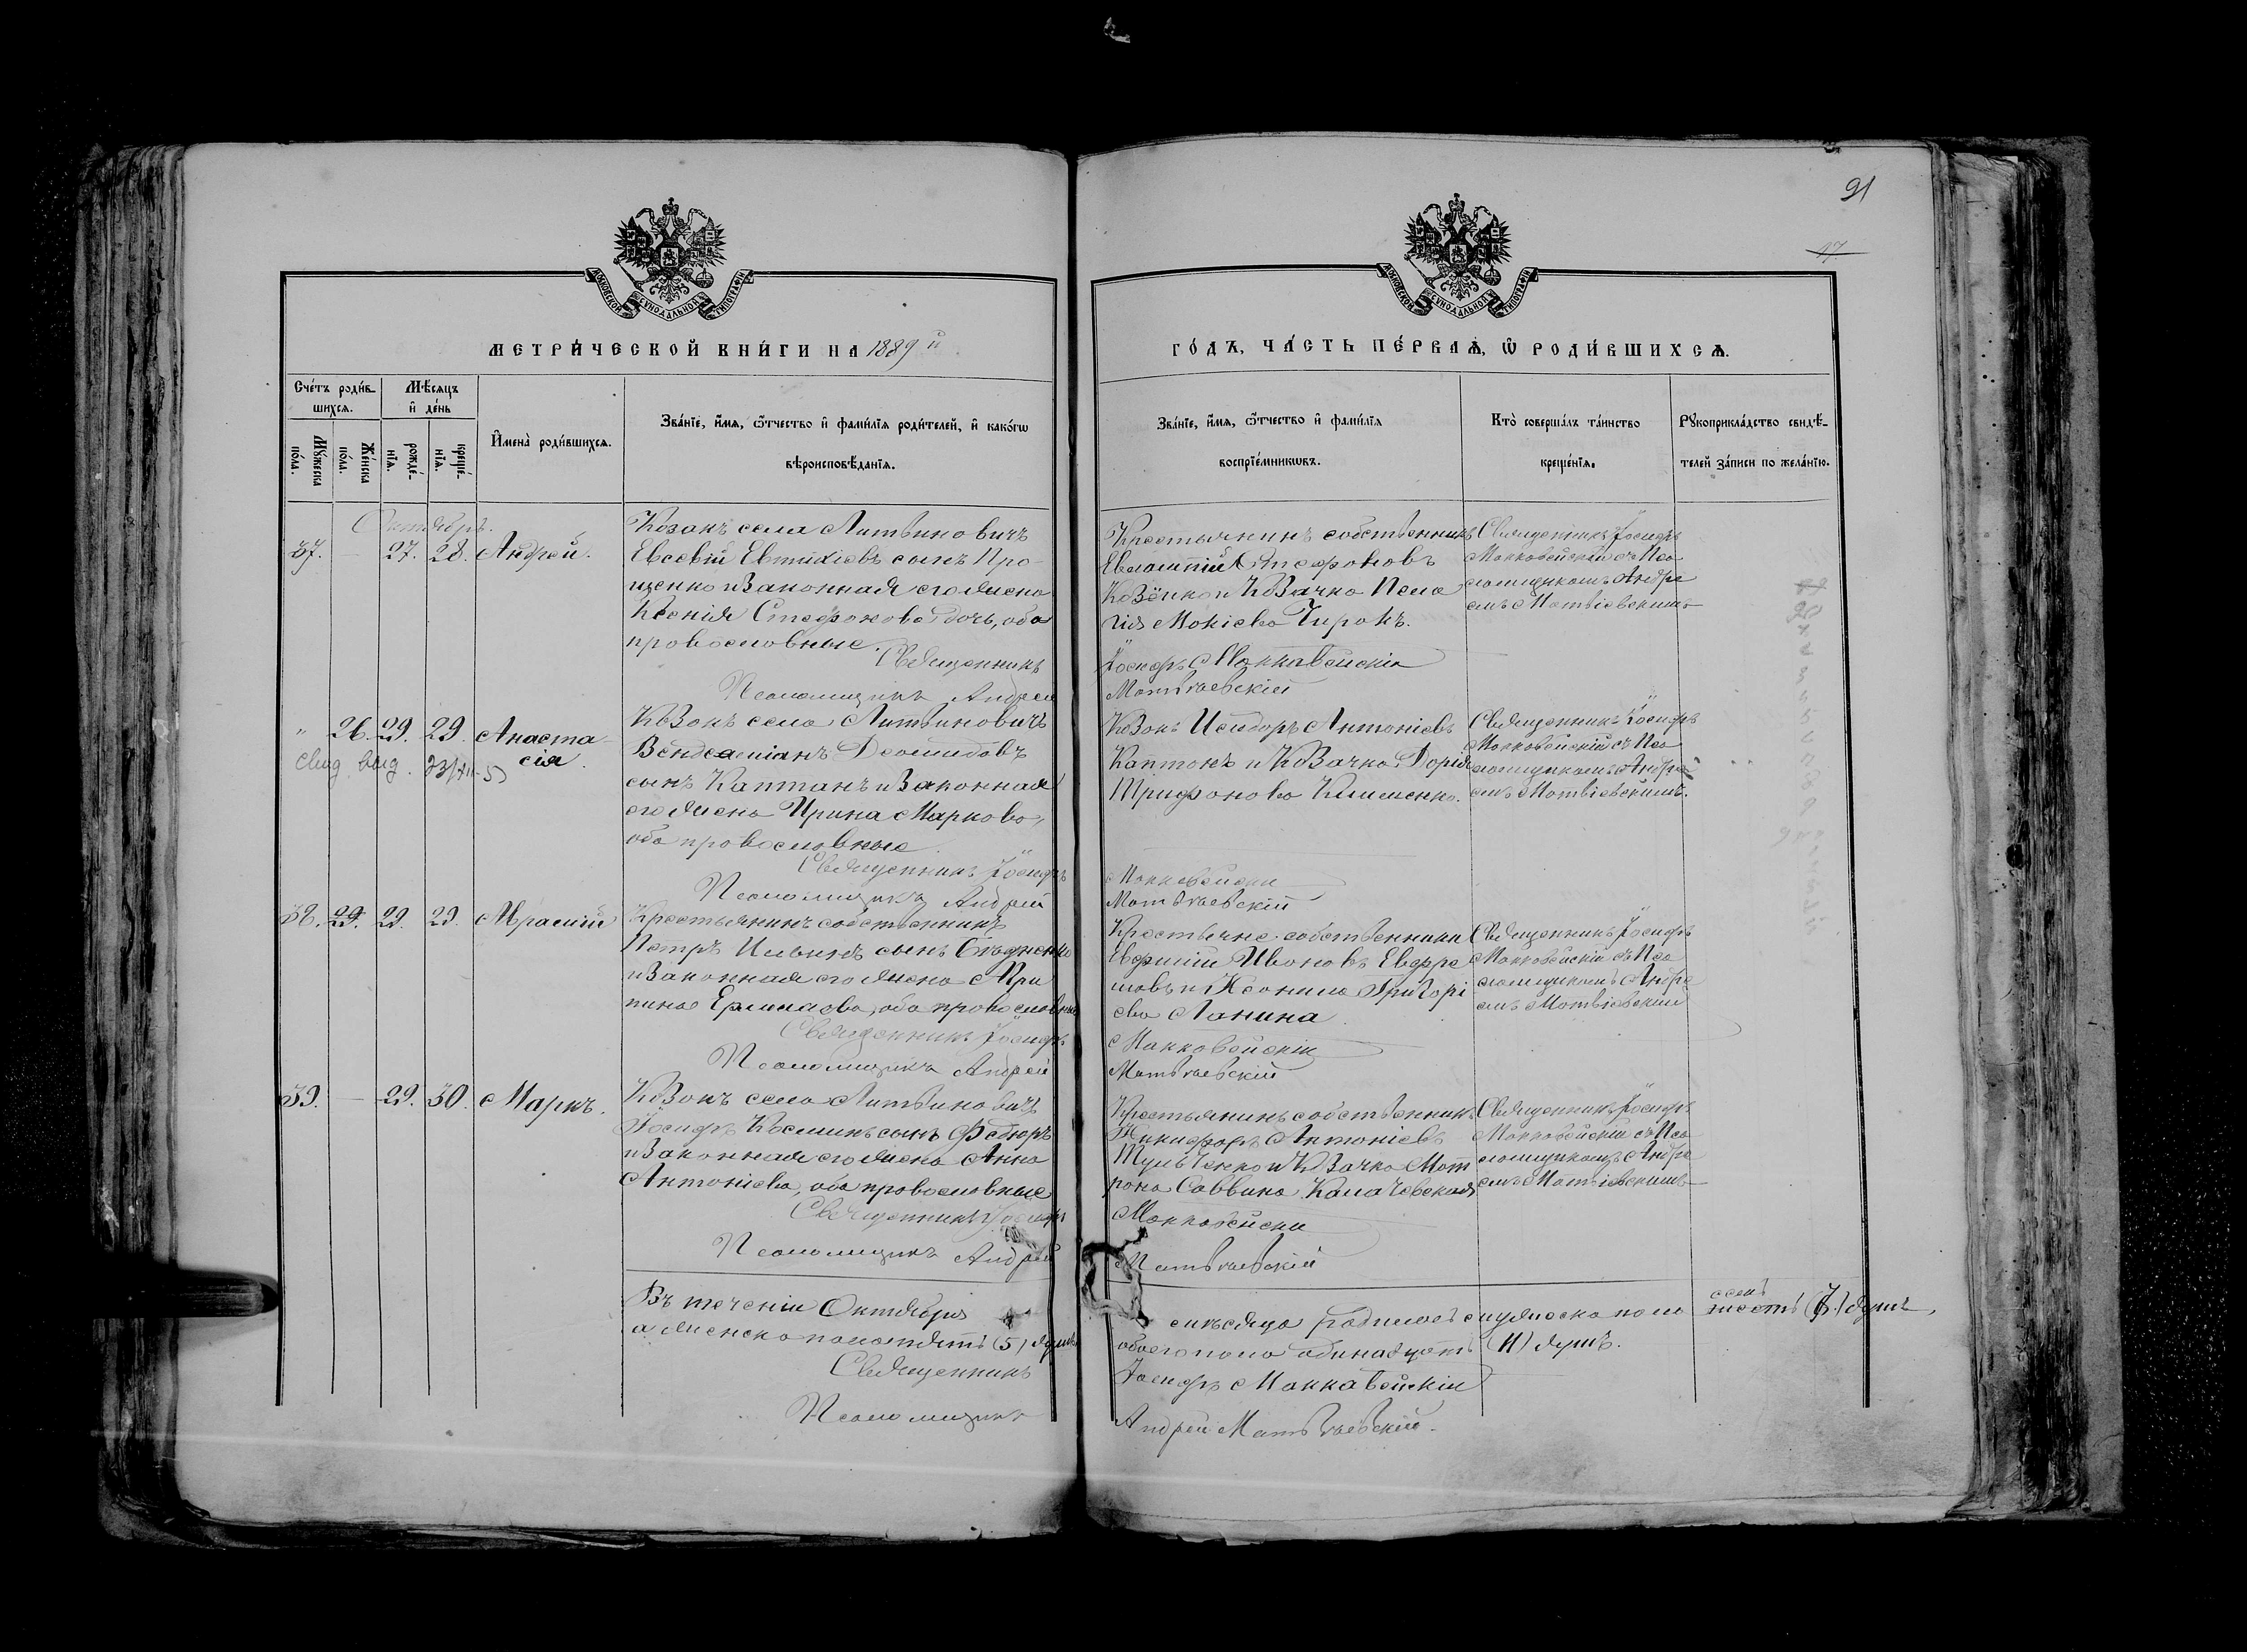 91
17
МОСКОВСКОЙ СѴНОДАЛЬНОЙ ТИПОГРАФІИ
МОСКОВСКОЙ СѴНОДАЛЬНОЙ ТИПОГРАФІИ
МЕТРИ́ЧЕСКОЙ КНИ́ГИ НА 1889 й
ГО́ДЪ, ЧА́СТЬ ПЕ́РВАѦ, Ѡ҆ РОДИ́ВШИХСѦ.
Сче́тъ роди́в-
шихсѧ.
Мѣ́сѧцъ
и҆ де́нь
Мꙋ́жеска
по́ла.
Же́нска
по́ла.
рожде́-
нїѧ.
креще́-
нїѧ.
И҆мена̀ роди́вшихсѧ.
Зва́нїе, и҆́мѧ, ѻ҆́тчество и҆ фами́лїѧ роди́телей, и҆ како́гѡ
вѣроисповѣ́данїѧ.
Зва́нїе, и҆́мѧ, ѻ҆́тчество и҆ фами́лїѧ
воспрїе́мникѡвъ.
Кто̀ соверша́лъ та́инство
креще́нїѧ.
Рꙋкоприкла́дство свидѣ́-
телей за́писи по жела́нїю.
Октябрь.
37. — 27. 28. Андрей.
Козакъ села Литвиновичъ
Евсевій Евтихіевъ сынъ Про-
щенко и законная его жена
Ксенія Стефанова дочь, оба
православные.
Священникъ
Псаломщикъ Андрей
Крестьянинъ собственникъ
Евлампій Стефановъ
Козёнко и козачка Пела
гія Мокіева Чирокъ.
Іосифъ Маккавейскій
Матвѣевскій
Священникъ Іосифъ
Маккавейскій съ Пса
ломщикомъ Андре
емъ Матвіевскимъ
" 26. 29. 29. Анаста
сія.
Свид. выд.
Козакъ села Литвиновичъ
Діомидовъ
сынъ Каптанъ и законная
его жена Ирина Маркова,
оба православные
Священникъ Іосифъ
Псаломщикъ Андрей
Козакъ Исидоръ Антоніевъ
Каптанъ и козачка Дорія
Трифонова Клименко.
Маккавейскій
Матвѣевскій
Священникъ Іосифъ
Маккавейскій съ Пса
ломщикомъ Андре
емъ Матвіевскимъ.
38. 29. 29. 29.
Крестьянинъ собственникъ
Петръ Ильинъ сынъ
и законная его жена Агри
пина Ермилова, оба православные
Священникъ Іосифъ
Псаломщикъ Андрей
Крестьяне собственники
Евфимій Ивановъ Евфре
мовъ и Неонила Григорі
ева Ланина
Маккавейскій
Матвѣевскій
Священникъ Іосифъ
Маккавейскій съ Пса
ломщикомъ Андре
емъ Матвіевскимъ
39. — 29. 30. Маркъ.
Козакъ села Литвиновичъ
Іосифъ Косминъ сынъ
и законная его жена Анна
Антоніева, оба православные
Священникъ Іосифъ
Псаломщикъ Андрей
Крестьянинъ собственникъ
Никифоръ Антоніевъ
и козачка Мот
рона Саввина Калачевская
Маккавейскій
Матвѣевскій
Священникъ Іосифъ
Маккавейскій съ Пса
ломщикомъ Андре
емъ Матвіевскимъ
Въ теченіи Октября мѣсяца родилось мужеска пола
семь
шесть душъ,
а женска пола пять (5) душъ
обоего пола одинадцать (11) душъ.
Священникъ Іосифъ Маккавейскій
Псаломщикъ Андрей Матвѣевскій.